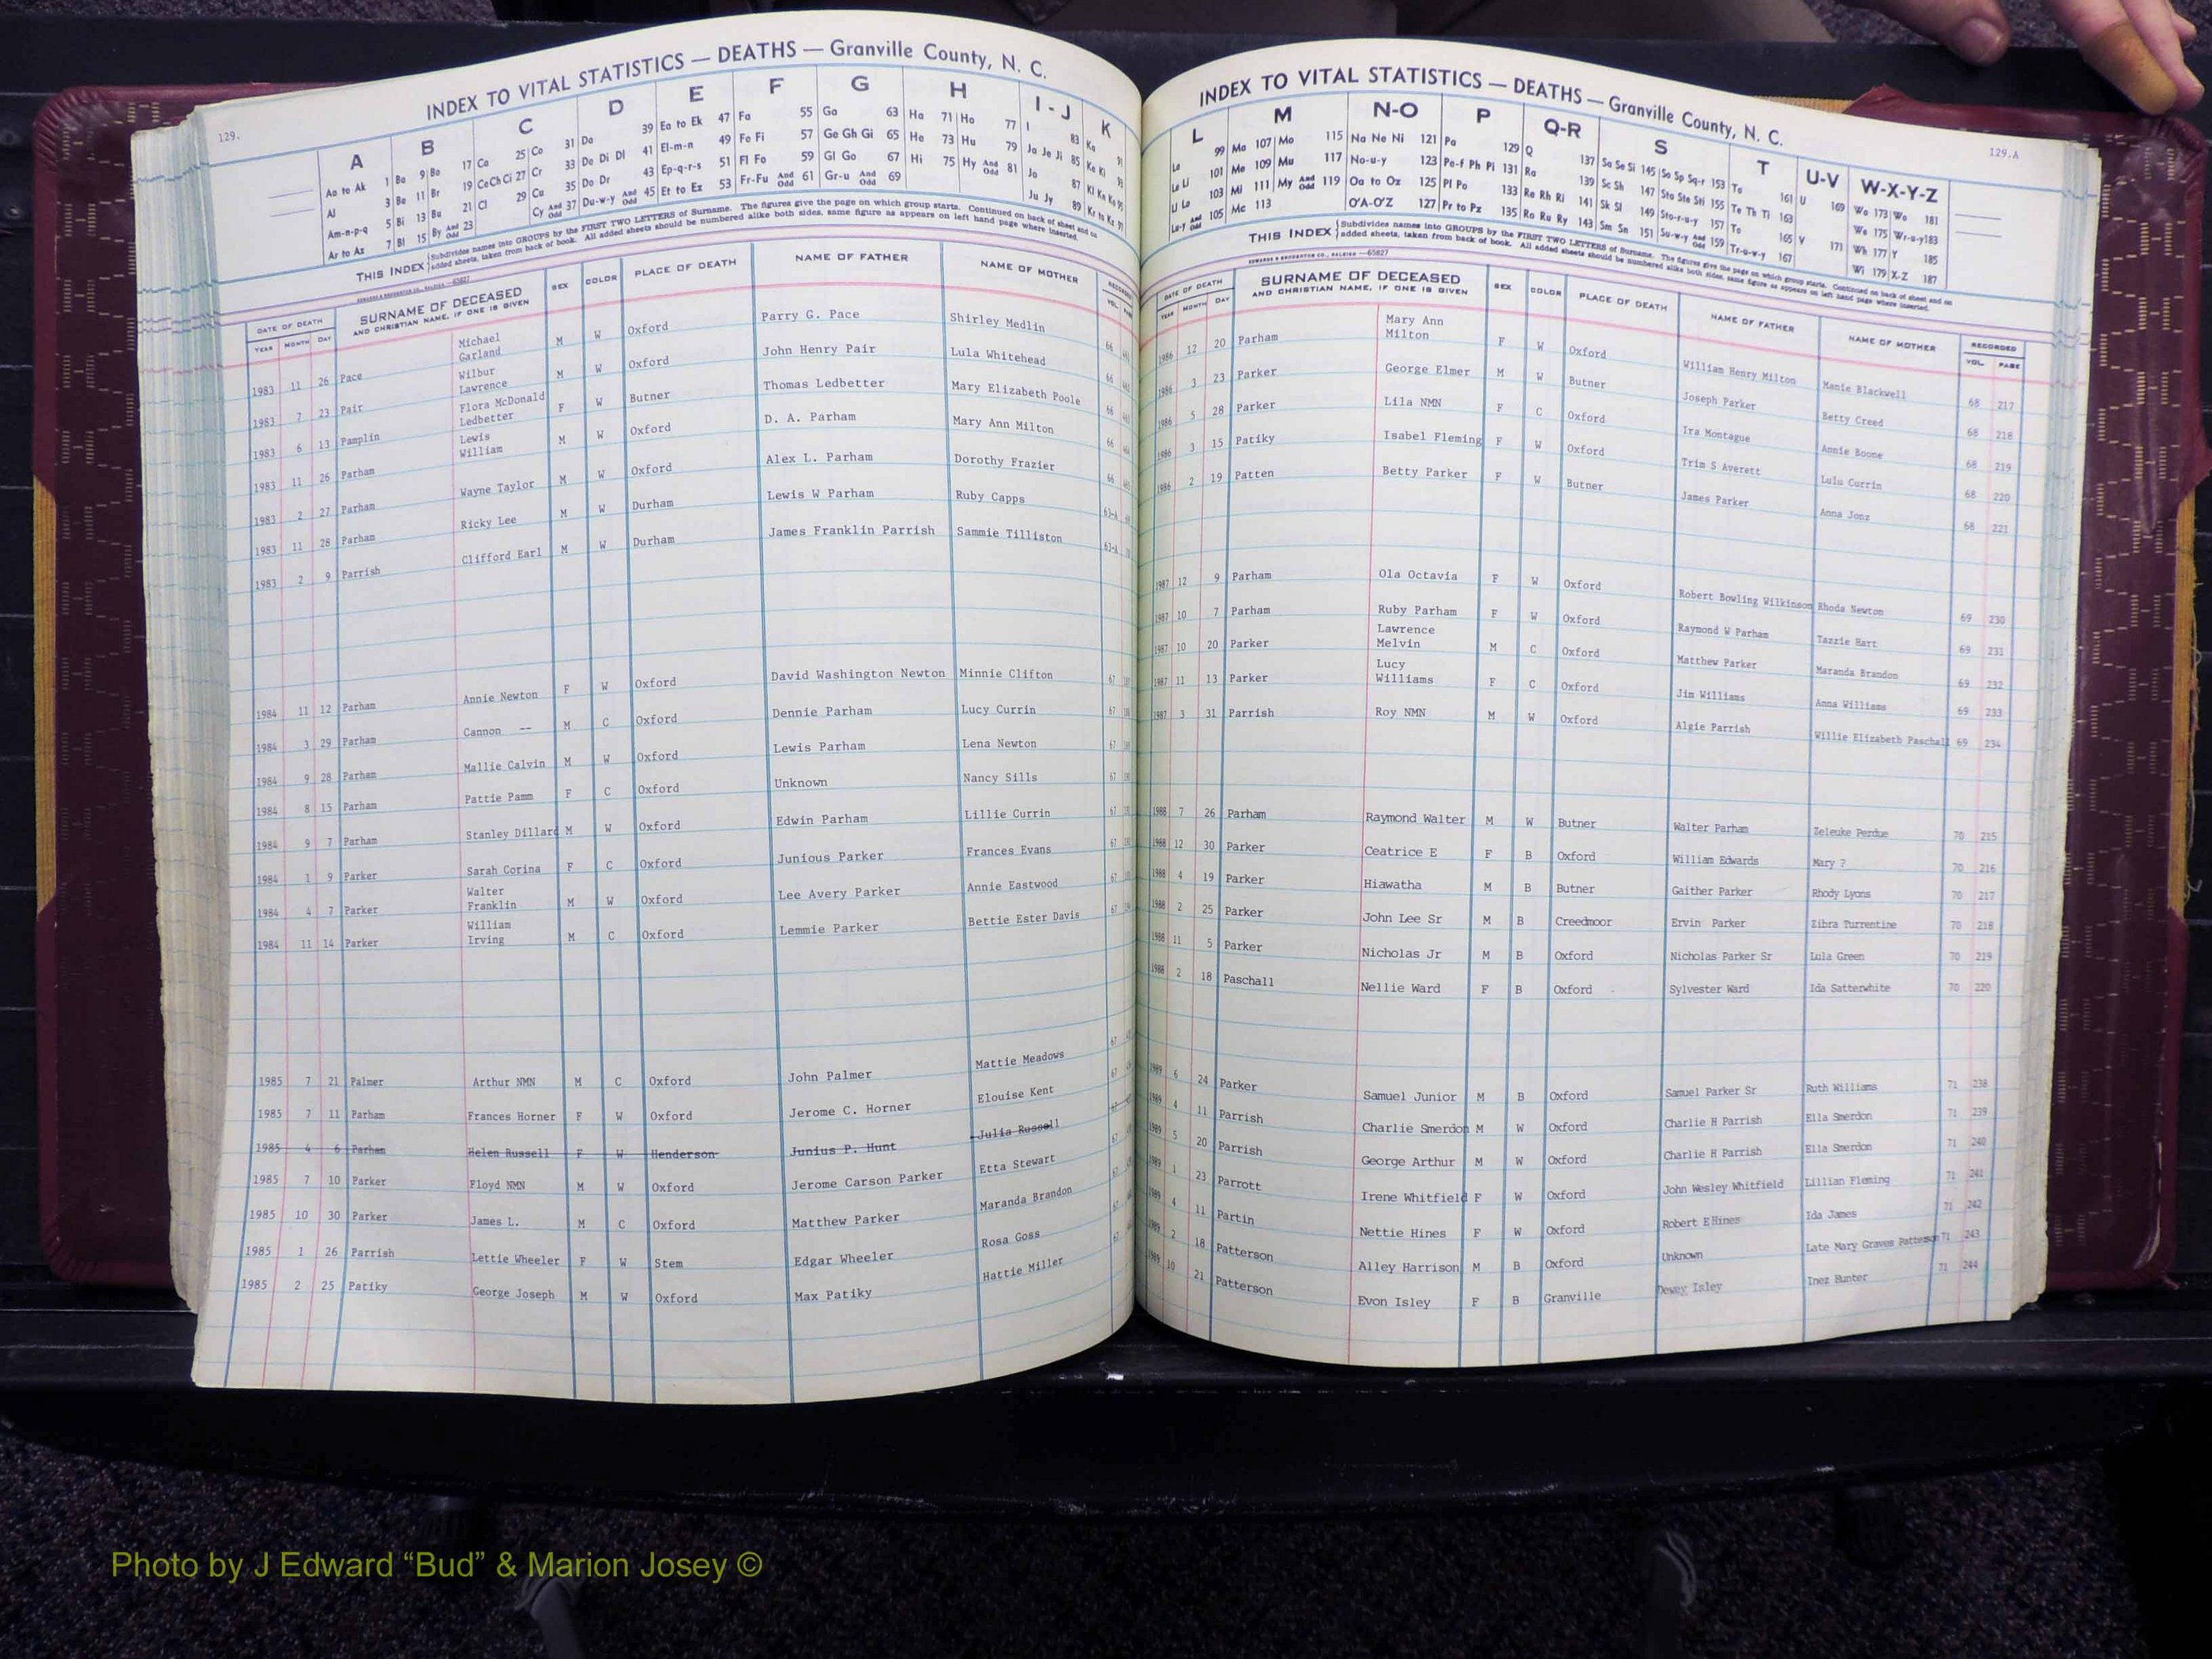 129.
INDEX TO VITAL STATISTICS — DEATHS — Granville County, N. C.
A B C D E F G H I - J K
Aa to Ak 1 Ba 9 Bo 17 Ca 25 Co 31 Da 39 Ea to Ek 47 Fa 55 Ga 63 Ha 71 Ho 77 I 83 Ka 91
Al 3 Be 11 Br 19 Ce Ch Ci 27 Cr 33 De Di Dl 41 El-m-n 49 Fe Fi 57 Ge Gh Gi 65 He 73 Hu 79 Ja Je Ji 85 Ke Ki 93
Am-n-p-q 5 Bi 13 Bu 21 Cl 29 Cu 35 Do Dr 43 Ep-q-r-s 51 Fl Fo 59 Gl Go 67 Hi 75 Hy And Odd 81 Jo 87 Kl Kn Ko 95
Ar to Az 7 Bl 15 By And Odd 23 Cy And Odd 37 Du-w-y And Odd 45 Et to Ez 53 Fr-Fu And Odd 61 Gr-u And Odd 69 Ju Jy 89 Kr to Kz 97
THIS INDEX Subdivides names into GROUPS by the FIRST TWO LETTERS of Surname. The figures give the page on which group starts. Continued on back of sheet and on
added sheets, taken from back of book. All added sheets should be numbered alike both sides, same figure as appears on left hand page where inserted.
EDWARDS & BROUGHTON CO., RALEIGH —65827
DATE OF DEATH SURNAME OF DECEASED SEX COLOR PLACE OF DEATH NAME OF FATHER NAME OF MOTHER RECORDED
YEAR MONTH DAY AND CHRISTIAN NAME, IF ONE IS GIVEN VOL.
1983 11 26 Pace Michael Garland M W Oxford Parry G. Pace Shirley Medlin 66
1983 7 23 Pair Wilbur Lawrence M W Oxford John Henry Pair Lula Whitehead 66
1983 6 13 Pamplin Flora McDonald Ledbetter F W Butner Thomas Ledbetter Mary Elizabeth Poole 66
1983 11 26 Parham Lewis William M W Oxford D. A. Parham Mary Ann Milton 66
1983 2 27 Parham Wayne Taylor M W Oxford Alex L. Parham Dorothy Frazier 66
1983 11 28 Parham Ricky Lee M W Durham Lewis W Parham Ruby Capps 63-A
1983 2 9 Parrish Clifford Earl M W Durham James Franklin Parrish Sammie Tilliston 63-A
1984 11 12 Parham Annie Newton F W Oxford David Washington Newton Minnie Clifton 67
1984 3 29 Parham Cannon -- M C Oxford Dennie Parham Lucy Currin 67
1984 9 28 Parham Mallie Calvin M W Oxford Lewis Parham Lena Newton 67
1984 8 15 Parham Pattie Pamm F C Oxford Unknown Nancy Sills 67
1984 9 7 Parham Stanley Dillard M W Oxford Edwin Parham Lillie Currin 67
1984 1 9 Parker Sarah Corina F C Oxford Junious Parker Frances Evans 67
1984 4 7 Parker Walter Franklin M W Oxford Lee Avery Parker Annie Eastwood 67
1984 11 14 Parker William Irving M C Oxford Lemmie Parker Bettie Ester Davis 67
1985 7 21 Palmer Arthur NMN M C Oxford John Palmer Mattie Meadows 67
1985 7 11 Parham Frances Horner F W Oxford Jerome C. Horner Elouise Kent 67
1985 4 6 Parham Helen Russell F W Henderson Junius P. Hunt Julia Russell 67
1985 7 10 Parker Floyd NMN M W Oxford Jerome Carson Parker Etta Stewart 67
1985 10 30 Parker James L. M C Oxford Matthew Parker Maranda Brandon 67
1985 1 26 Parrish Lettie Wheeler F W Stem Edgar Wheeler Rosa Goss 67
1985 2 25 Patiky George Joseph M W Oxford Max Patiky Hattie Miller 67
129.A
INDEX TO VITAL STATISTICS — DEATHS — Granville County, N. C.
L M N-O P Q-R S T U-V W-X-Y-Z
La 99 Ma 107 Mo 115 Na Ne Ni 121 Pa 129 Q 137 Sa Se Si 145 So Sp Sq-r 153 Ta 161 U 169 Wa 173 Wo 181
Le Li 101 Me 109 Mu 117 No-u-y 123 Pe-f Ph Pi 131 Ra 139 Sc Sh 147 Sta Ste Sti 155 Te Th Ti 163 We 175 Wr-u-y 183
Ll Lo 103 Mi 111 My And Odd 119 Oa to Oz 125 Pl Po 133 Re Rh Ri 141 Sk Sl 149 Sto-r-u-y 157 To 165 V 171 Wh 177 Y 185
Lu-y And Odd 105 Mc 113 O'A-O'Z 127 Pr to Pz 135 Ro Ru Ry 143 Sm Sn 151 Su-w-y And Odd 159 Tr-u-w-y 167 Wi 179 X-Z 187
THIS INDEX Subdivides names into GROUPS by the FIRST TWO LETTERS of Surname. The figures give the page on which group starts. Continued on back of sheet and on
added sheets, taken from back of book. All added sheets should be numbered alike both sides, same figure as appears on left hand page where inserted.
EDWARDS & BROUGHTON CO., RALEIGH —65827
DATE OF DEATH SURNAME OF DECEASED SEX COLOR PLACE OF DEATH NAME OF FATHER NAME OF MOTHER RECORDED
YEAR MONTH DAY AND CHRISTIAN NAME, IF ONE IS GIVEN VOL. PAGE
1986 12 20 Parham Mary Ann Milton F W Oxford William Henry Milton Mamie Blackwell 68 217
1986 3 23 Parker George Elmer M W Butner Joseph Parker Betty Creed 68 218
1986 5 28 Parker Lila NMN F C Oxford Ira Montague Annie Boone 68 219
1986 3 15 Patiky Isabel Fleming F W Oxford Trim S Averett Lulu Currin 68 220
1986 2 19 Patten Betty Parker F W Butner James Parker Anna Jonz 68 221
1987 12 9 Parham Ola Octavia F W Oxford Robert Bowling Wilkinson Rhoda Newton 69 230
1987 10 7 Parham Ruby Parham F W Oxford Raymond W Parham Tazzie Hart 69 231
1987 10 20 Parker Lawrence Melvin M C Oxford Matthew Parker Maranda Brandon 69 232
1987 11 13 Parker Lucy Williams F C Oxford Jim Williams Anna Williams 69 233
1987 3 31 Parrish Roy NMN M W Oxford Algie Parrish Willie Elizabeth Paschall 69 234
1988 7 26 Parham Raymond Walter M W Butner Walter Parham Zeleuke Perdue 70 215
1988 12 30 Parker Ceatrice E F B Oxford William Edwards Mary ? 70 216
1988 4 19 Parker Hiawatha M B Butner Gaither Parker Rhody Lyons 70 217
1988 2 25 Parker John Lee Sr M B Creedmoor Ervin Parker Zibra Turrentine 70 218
1988 11 5 Parker Nicholas Jr M B Oxford Nicholas Parker Sr Lula Green 70 219
1988 2 18 Paschall Nellie Ward F B Oxford Sylvester Ward Ida Satterwhite 70 220
1989 6 24 Parker Samuel Junior M B Oxford Samuel Parker Sr Ruth Williams 71 238
1989 4 11 Parrish Charlie Smerdon M W Oxford Charlie H Parrish Ella Smerdon 71 239
1989 5 20 Parrish George Arthur M W Oxford Charlie H Parrish Ella Smerdon 71 240
1989 1 23 Parrott Irene Whitfield F W Oxford John Wesley Whitfield Lillian Fleming 71 241
1989 4 11 Partin Nettie Hines F W Oxford Robert E Hines Ida James 71 242
1989 2 18 Patterson Alley Harrison M B Oxford Unknown Late Mary Graves Patterson 71 243
1989 10 21 Patterson Evon Isley F B Granville Dewey Isley Inez Hunter 71 244
Photo by J Edward “Bud” & Marion Josey ©